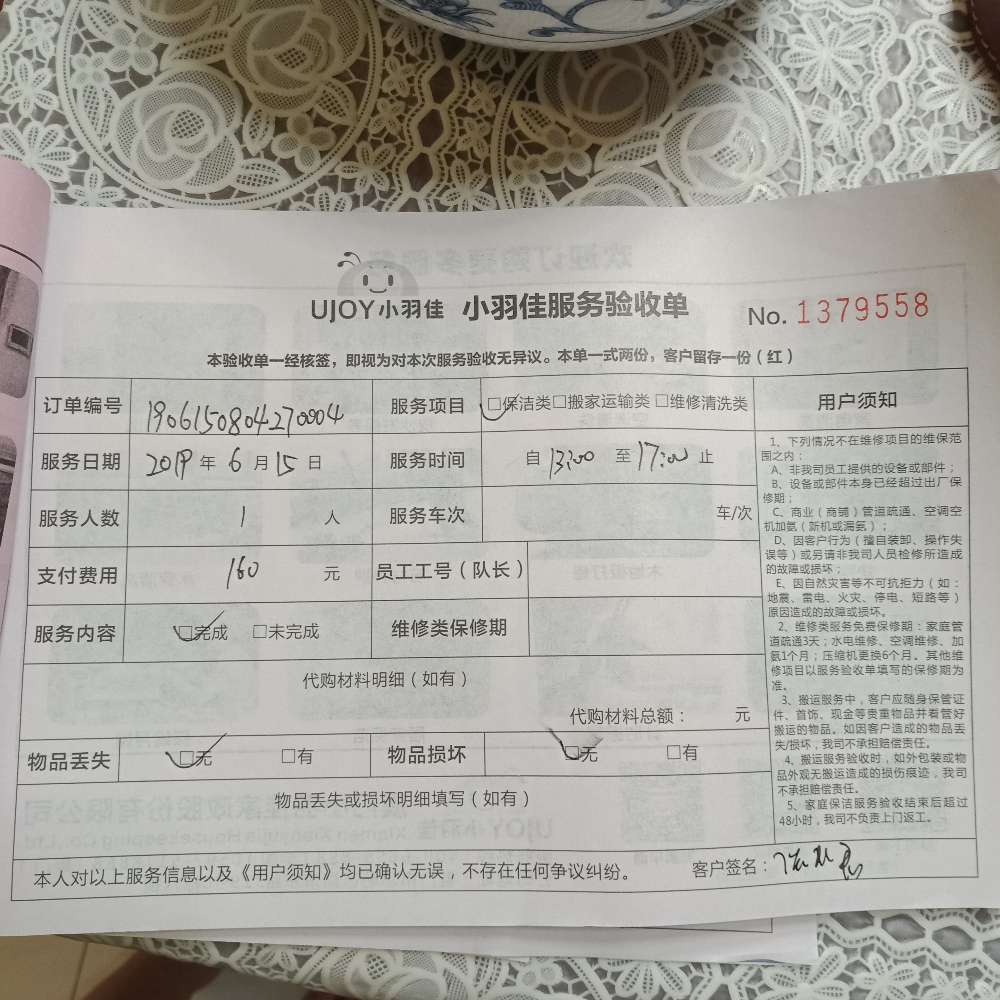 UJOY小羽佳 小羽佳服务验收单
No. 1379558
本验收单一经核签，即视为对本次服务验收无异议。本单一式两份，客户留存一份（红）
订单编号 190615080427000904 服务项目 □保洁类□搬家运输类 □维修清洗类
服务日期 2019 年 6 月 15 日 服务时间 自 13:00 至 17:00 止
服务人数 1 人 服务车次 车/次
支付费用 160 元 员工工号（队长）
服务内容 □完成 □未完成 维修类保修期
代购材料明细（如有）
代购材料总额： 元
物品丢失 □无 □有 物品损坏 □无 □有
物品丢失或损坏明细填写（如有）
本人对以上服务信息以及《用户须知》均已确认无误，不存在任何争议纠纷。 客户签名：
用户须知
1、下列情况不在维修项目的维保范
围之内：
A、非我司员工提供的设备或部件；
B、设备或部件本身已经超过出厂保
修期；
C、商业（商铺）管道疏通、空调空
机加氨（新机或海氨）；
D、因客户行为（擅自装卸、操作失
误等）或另请非我司人员检修所造成
的故障或损坏；
E、因自然灾害等不可抗拒力（如：
地震、雷电、火灾、停电、短路等）
原因造成的故障或损坏。
2、维修类服务免费保修期：家庭管
道疏通3天；水电维修、空调维修、加
氨1个月；压缩机更换6个月。其他维
修项目以服务验收单填写的保修期为
准。
3、搬运服务中，客户应随身保管证
件、首饰、现金等贵重物品并看管好
搬运的物品。如因客户造成的物品丢
失/损坏，我司不承担赔偿责任。
4、搬运服务验收时，如外包装或物
品外观无搬运造成的损伤痕迹，我司
不承担赔偿责任。
5、家庭保洁服务验收结束后超过
48小时，我司不负责上门返工。